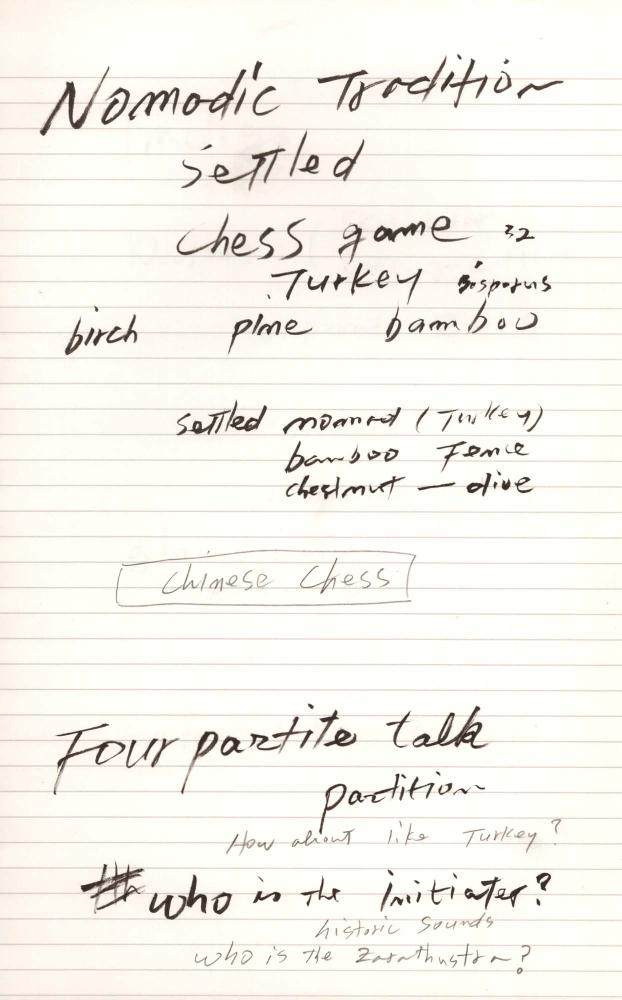 Nomadic Tradition
settled
chess game 32
Turkey Bisporus
birch pine bamboo
settled nomad (Turkey)
bamboo Fence
chestnut — olive
Chinese Chess
Four partite talk
partition
How about like Turkey?
# who is the initiater?
historic sounds
who is the Zarathustra?